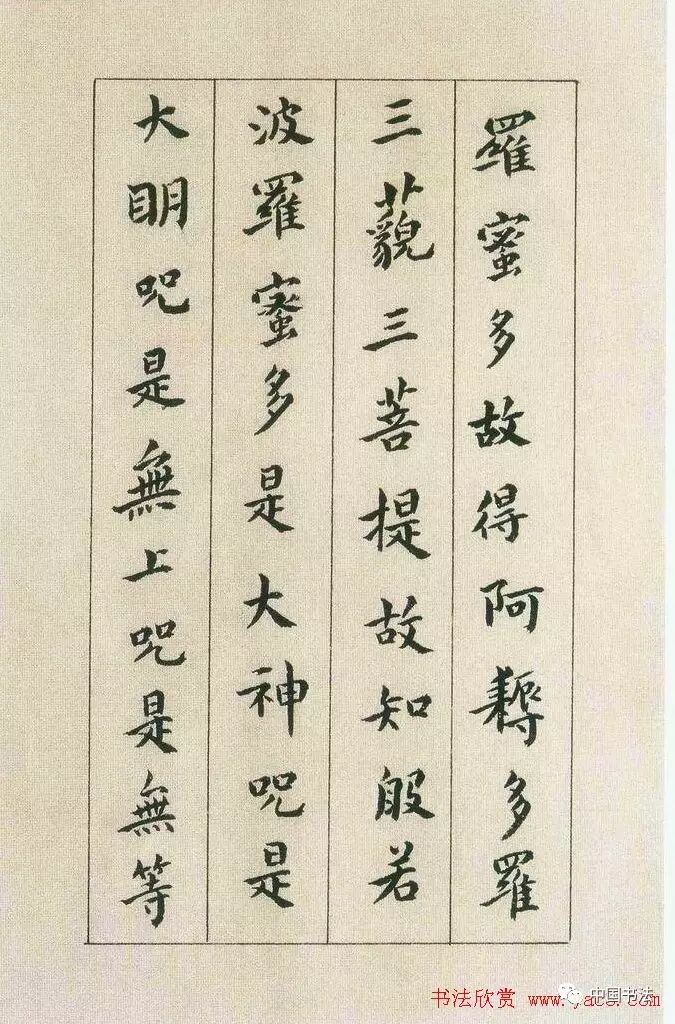 羅蜜多故得阿耨多羅
三藐三菩提故知般若
波羅蜜多是大神咒是
大明咒是無上咒是無等
中国书法
书法欣赏 www.yac8.com